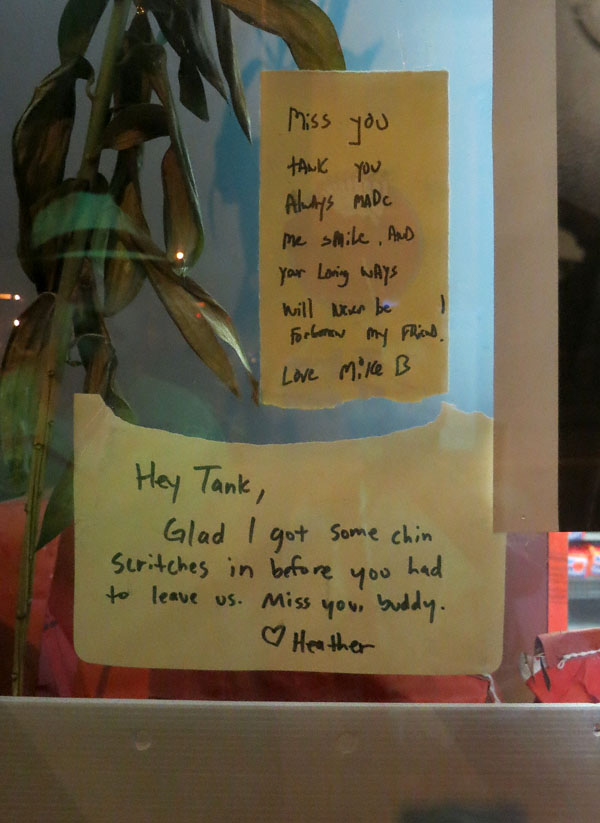 Miss you
tank you
Always MADe
me smile, AND
your Loving wAys
will Never be
Forgotten my Friend.
Love Mike B
Hey Tank,
Glad I got some chin
scritches in before you had
to leave us. Miss you, buddy.
♡ Heather